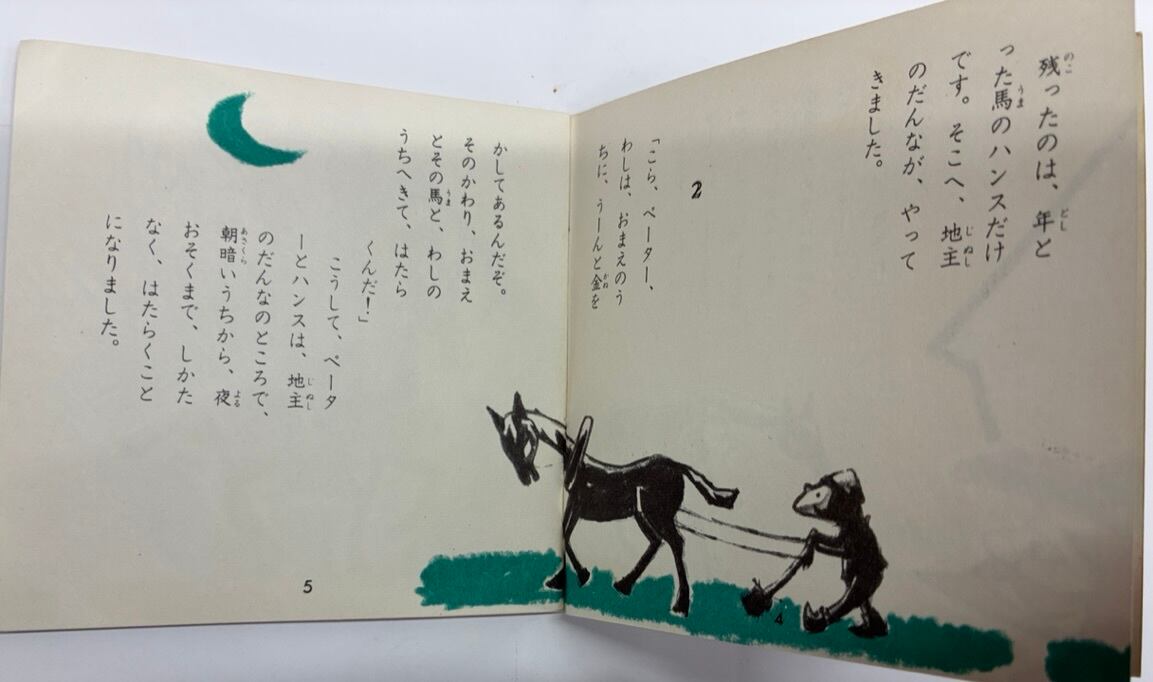 残ったのは、年と
った馬のハンスだけ
です。そこへ、地主
のだんなが、やって
きました。
2
「こら、ペーター、
わしは、おまえのう
ちに、うーんと金を
4
かしてあるんだぞ。
そのかわり、おまえ
とその馬と、わしの
うちへきて、はたら
くんだ!」
こうして、ペータ
ーとハンスは、地主
のだんなのところで、
朝暗いうちから、夜
おそくまで、しかた
なく、はたらくこと
になりました。
5